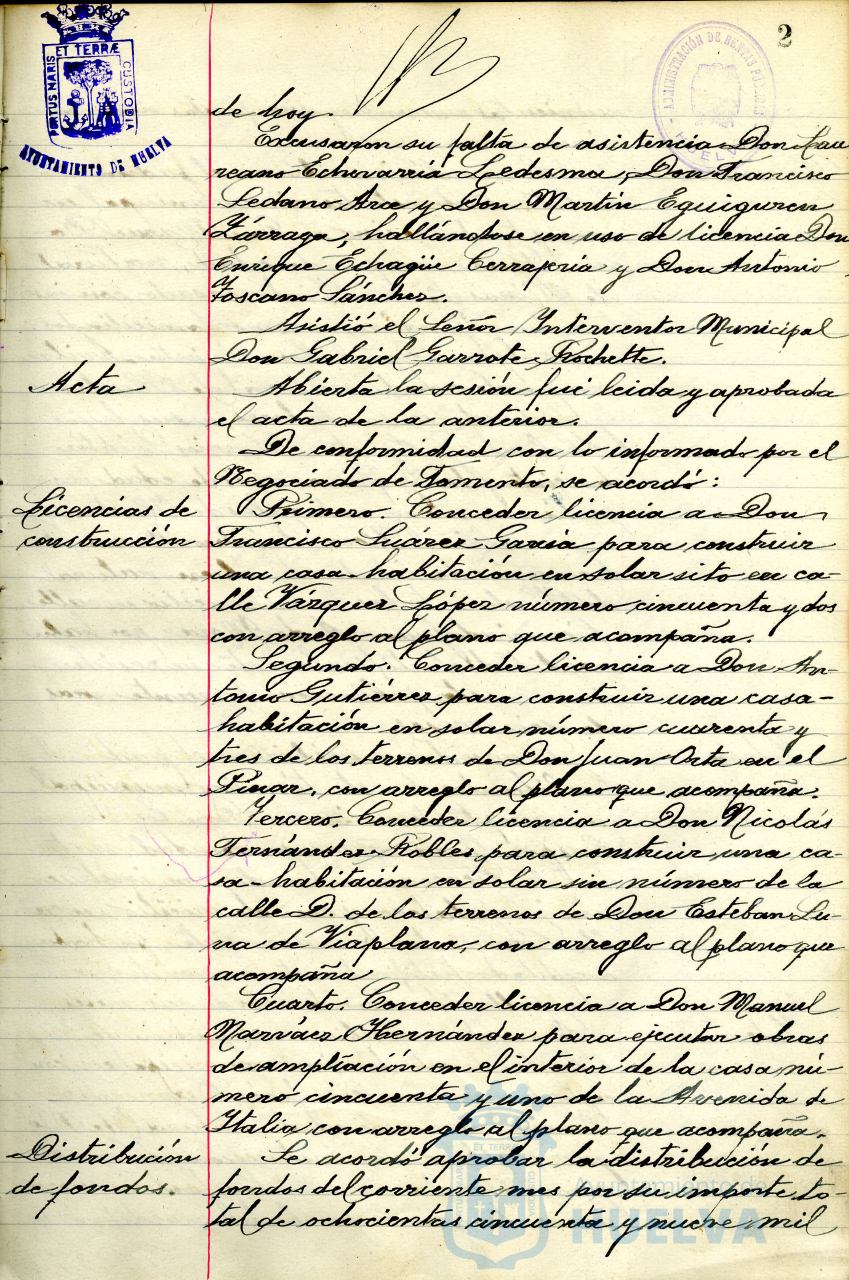 2
PORTUS MARIS ET TERRÆ CUSTODIA
AYUNTAMIENTO DE HUELVA
ADMINISTRACIÓN DE RENTAS PÚBLICAS
HUELVA
de hoy.
Excusaron su falta de asistencia Don Lau-
reano Echevarría Ledesma, Don Francisco
Sedano Arce y Don Martín Eguiguren
Zárraga, hallándose en uso de licencia Don
Enrique Echagüe Cerrajería y Don Antonio
Toscano Sánchez.
Asistió el Señor Interventor Municipal
Don Gabriel Garrote Rochette.
Acta
Abierta la sesión fué leida y aprobada
el acta de la anterior.
De conformidad con lo informado por el
Negociado de Fomento, se acordó:
Licencias de
construcción
Primero. Conceder licencia a Don
Francisco Suárez García para construir
una casa-habitación en solar sito en ca-
lle Vázquez López número cincuenta y dos
con arreglo al plano que acompaña.
Segundo. Conceder licencia a Don An-
tonio Gutiérrez para construir una casa-
habitación en solar número cuarenta y
tres de los terrenos de Don Juan Orta en el
Pinar, con arreglo al plano que acompaña.
Tercero. Conceder licencia a Don Nicolás
Fernández Robles para construir una ca-
sa-habitación en solar sin número de la
calle D. de los terrenos de Don Esteban Lu-
na de Viaplana, con arreglo al plano que
acompaña
Cuarto. Conceder licencia a Don Manuel
Narváez Hernández para ejecutar obras
de ampliación en el interior de la casa nú-
mero cincuenta y uno de la Avenida de
Italia con arreglo al plano que acompaña.
Distribución
de fondos.
Se acordó aprobar la distribución de
fondos del corriente mes por su importe to-
tal de ochocientas cincuenta y nueve mil
Ayuntamiento de
HUELVA